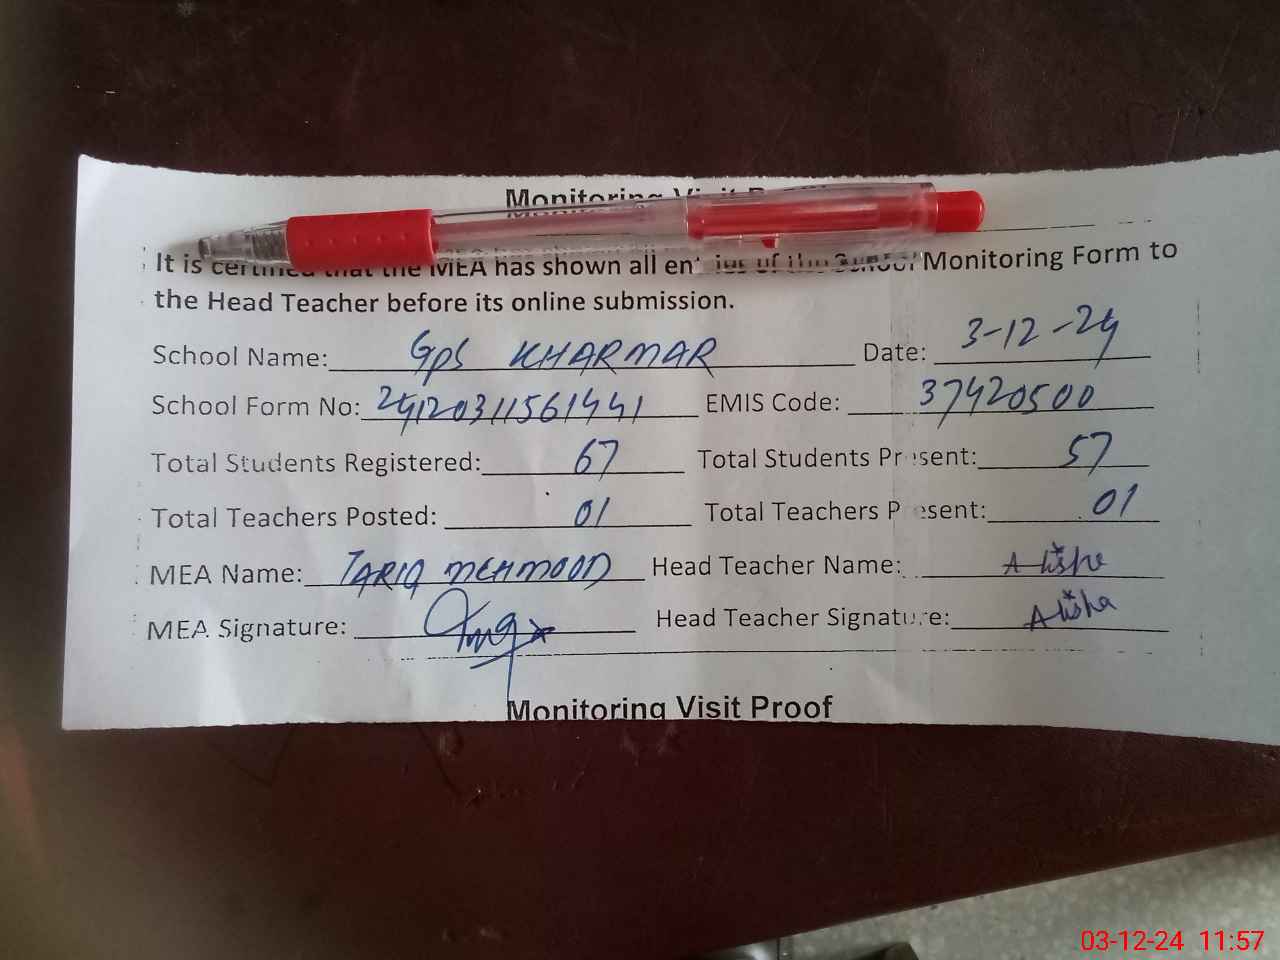 Monitoring Visit
It is certified that the MEA has shown all entries of the School Monitoring Form to
the Head Teacher before its online submission.
School Name: GPS KHARMAR Date: 3-12-24
School Form No: 24120311561441 EMIS Code: 37420500
Total Students Registered: 67 Total Students Present: 57
Total Teachers Posted: 01 Total Teachers Present: 01
MEA Name: TARIQ MEHMOOD Head Teacher Name: Alishe
MEA Signature: Head Teacher Signature: Alisha
Monitoring Visit Proof
03-12-24 11:57